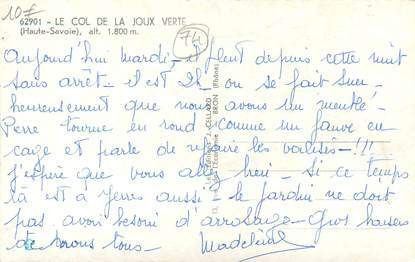 10€
62901 - LE COL DE LA JOUX VERTE
(Haute-Savoie), alt. 1.800 m.
74
Aujourd'hui mardi - il pleut depuis cette nuit
sans arrêt - il est 2h. on se fait suer -
heureusement que nous avons un meublé -
Pierre tourne en rond comme un fauve en
cage et parle de refaire les valises - !!!
j'espère que vous allez bien - si ce temps
là est à Yerres aussi - le jardin ne doit
pas avoir besoin d'arrosage - Gros baisers
de nous tous - Madeleine
CELLARD
BRON (Rhône)